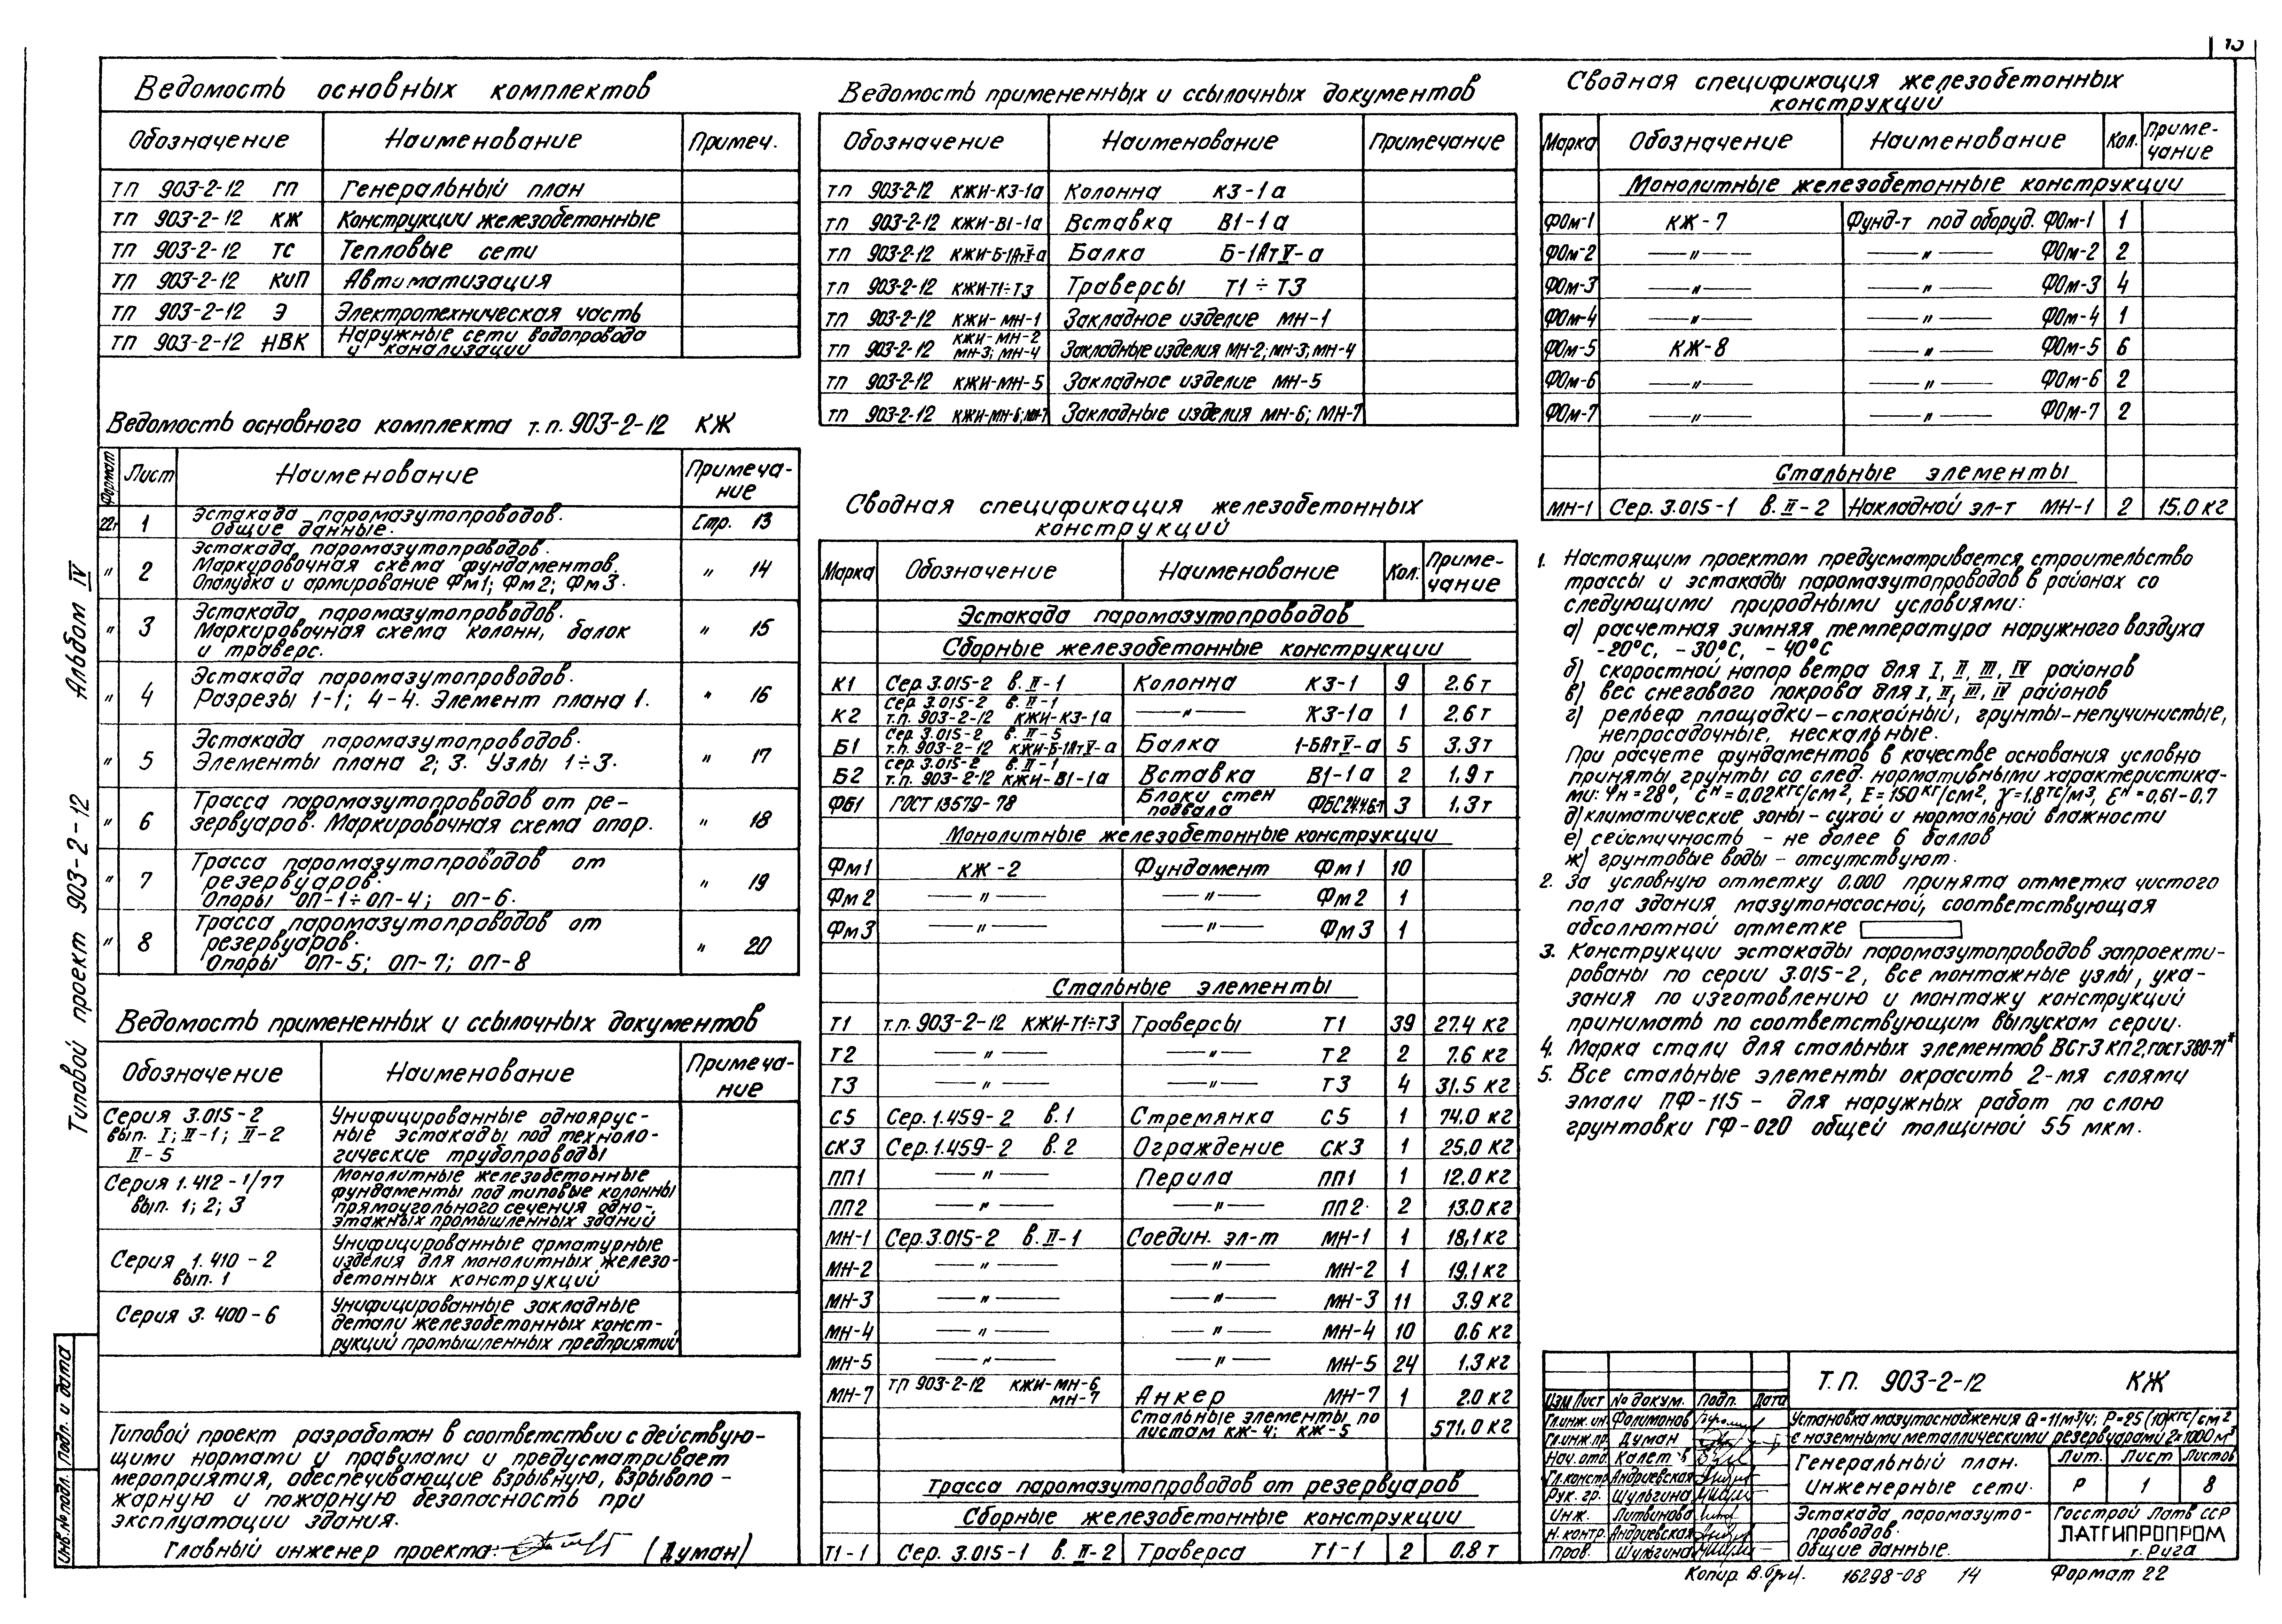 13
Ведомость основных комплектов
Обозначение Наименование Примеч.
ТП 903-2-12 ГП Генеральный план
ТП 903-2-12 КЖ Конструкции железобетонные
ТП 903-2-12 ТС Тепловые сети
ТП 903-2-12 КиП Автоматизация
ТП 903-2-12 Э Электротехническая часть
ТП 903-2-12 НВК Наружные сети водопровода
и канализации
Ведомость основного комплекта т.п. 903-2-12 КЖ
Формат Лист Наименование Примеча-
ние
22г 1 Эстакада паромазутопроводов. Стр. 13
Общие данные.
" 2 Эстакада паромазутопроводов. " 14
Маркировочная схема фундаментов.
Опалубка и армирование Фм1; Фм2; Фм3.
" 3 Эстакада паромазутопроводов. " 15
Маркировочная схема колонн, балок
и траверс.
" 4 Эстакада паромазутопроводов. " 16
Разрезы 1-1; 4-4. Элемент плана 1.
" 5 Эстакада паромазутопроводов. " 17
Элементы плана 2; 3. Узлы 1÷3.
" 6 Трасса паромазутопроводов от ре- " 18
зервуаров. Маркировочная схема опор.
" 7 Трасса паромазутопроводов от " 19
резервуаров.
Опоры ОП-1÷ОП-4; ОП-6.
" 8 Трасса паромазутопроводов от " 20
резервуаров.
Опоры ОП-5; ОП-7; ОП-8
Ведомость примененных и ссылочных документов
Обозначение Наименование Примеча-
ние
Серия 3.015-2 Унифицированные одноярус-
вып. I; II-1; II-2 ные эстакады под техноло-
II-5 гические трубопроводы
Серия 1.412-1/77 Монолитные железобетонные
вып. 1; 2; 3 фундаменты под типовые колонны
прямоугольного сечения одно-
этажных промышленных зданий
Серия 1.410-2 Унифицированные арматурные
вып. 1 изделия для монолитных железо-
бетонных конструкций
Серия 3.400-6 Унифицированные закладные
детали железобетонных конст-
рукций промышленных предприятий
Типовой проект разработан в соответствии с действую-
щими нормами и правилами и предусматривает
мероприятия, обеспечивающие взрывную, взрывопо-
жарную и пожарную безопасность при
эксплуатации здания.
Главный инженер проекта: (Думан)
Типовой проект 903-2-12 Альбом IV
Инв.№подл. Подп. и дата
Ведомость примененных и ссылочных документов
Обозначение Наименование Примечание
ТП 903-2-12 КЖИ-К3-1а Колонна К3-1а
ТП 903-2-12 КЖИ-В1-1а Вставка В1-1а
ТП 903-2-12 КЖИ-Б-1АтV-а Балка Б-1АтV-а
ТП 903-2-12 КЖИ-Т1÷Т3 Траверсы Т1÷Т3
ТП 903-2-12 КЖИ-МН-1 Закладное изделие МН-1
ТП 903-2-12 КЖИ-МН-2 МН-3; МН-4 Закладные изделия МН-2; МН-3; МН-4
ТП 903-2-12 КЖИ-МН-5 Закладное изделие МН-5
ТП 903-2-12 КЖИ-МН-6;МН-7 Закладные изделия МН-6; МН-7
Сводная спецификация железобетонных
конструкций
Марка Обозначение Наименование Кол. Приме-
чание
Эстакада паромазутопроводов
Сборные железобетонные конструкции
К1 Сер. 3.015-2 в. II-1 Колонна К3-1 9 2.6 т
К2 Сер. 3.015-2 в. II-1 т.п. 903-2-12 КЖИ-К3-1а —"— К3-1а 1 2.6 т
Б1 Сер. 3.015-2 в. II-5 т.п. 903-2-12 КЖИ-Б-1АтV-а Балка 1-БАтV-а 5 3.3т
Б2 сер. 3.015-2 в. II-1 т.п. 903-2-12 КЖИ-В1-1а Вставка В1-1а 2 1.9 т
ФБ1 ГОСТ 13579-78 Блоки стен подвала ФБС24.4.6-т 3 1.3т
Монолитные железобетонные конструкции
Фм1 КЖ-2 Фундамент Фм1 10
Фм2 —"— —"— Фм2 1
Фм3 —"— —"— Фм3 1
Стальные элементы
Т1 т.п. 903-2-12 КЖИ-Т1÷Т3 Траверсы Т1 39 27.4 кг
Т2 —"— —"— Т2 2 7.6 кг
Т3 —"— —"— Т3 4 31.5 кг
С5 Сер. 1.459-2 в.1 Стремянка С5 1 74.0 кг
СК3 Сер. 1.459-2 в.2 Ограждение СК3 1 25.0 кг
ПП1 —"— Перила ПП1 1 12.0 кг
ПП2 —"— —"— ПП2 2 13.0 кг
МН-1 Сер. 3.015-2 в. II-1 Соедин. эл-т МН-1 1 18,1 кг
МН-2 —"— —"— МН-2 1 19.1 кг
МН-3 —"— —"— МН-3 11 3.9 кг
МН-4 —"— —"— МН-4 10 0.6 кг
МН-5 —"— —"— МН-5 24 1.3 кг
МН-7 ТП 903-2-12 КЖИ-МН-6 МН-7 Анкер МН-7 1 2.0 кг
Стальные элементы по
листам КЖ-4; КЖ-5 571.0 кг
Трасса паромазутопроводов от резервуаров
Сборные железобетонные конструкции
Т1-1 Сер. 3.015-1 в. II-2 Траверса Т1-1 2 0.8 т
Сводная спецификация железобетонных
конструкций
Марка Обозначение Наименование Кол. Приме-
чание
Монолитные железобетонные конструкции
ФОм-1 КЖ-7 Фунд-т под оборуд. ФОм-1 1
ФОм-2 —"— —"— ФОм-2 2
ФОм-3 —"— —"— ФОм-3 4
ФОм-4 —"— —"— ФОм-4 1
ФОм-5 КЖ-8 —"— ФОм-5 6
ФОм-6 —"— —"— ФОм-6 2
ФОм-7 —"— —"— ФОм-7 2
Стальные элементы
МН-1 Сер. 3.015-1 в. II-2 Накладной эл-т МН-1 2 15.0 кг
1. Настоящим проектом предусматривается строительство
трассы и эстакады паромазутопроводов в районах со
следующими природными условиями:
а) расчетная зимняя температура наружного воздуха
-20°С, -30°С, -40°С
б) скоростной напор ветра для I, II, III, IV районов
в) вес снегового покрова для I, II, III, IV районов
г) рельеф площадки – спокойный, грунты – непучинистые,
непросадочные, нескальные.
При расчете фундаментов в качестве основания условно
приняты грунты со след. нормативными характеристика-
ми: φн = 28°, Сн = 0.02 кгс/см², Е = 150 кг/см², γ = 1.8 тс/м³, εн = 0.61-0.7
д) климатические зоны – сухой и нормальной влажности
е) сейсмичность – не более 6 баллов
ж) грунтовые воды – отсутствуют.
2. За условную отметку 0.000 принята отметка чистого
пола здания мазутонасосной, соответствующая
абсолютной отметке
3. Конструкции эстакады паромазутопроводов запроекти-
рованы по серии 3.015-2, все монтажные узлы, ука-
зания по изготовлению и монтажу конструкций
принимать по соответствующим выпускам серии.
4. Марка стали для стальных элементов ВСт3 кп2, гост 380-71*
5. Все стальные элементы окрасить 2-мя слоями
эмали ПФ-115 – для наружных работ по слою
грунтовки ГФ-020 общей толщиной 55 мкм.
Т.П. 903-2-12 КЖ
Изм Лист № докум. Подп. Дата
Гл.инж.ин. Филимонов
Гл.инж.пр. Думан
Нач. отд.
Гл.констр. Андриевская
Рук. гр. Шульгина
Инж. Литвинова
Н.контр. Андриевская
Пров. Шульгина
Установка мазутоснабжения Q=11м³/ч; Р=25 (10) кгс/см²
с наземными металлическими резервуарами 2×1000 м³
Генеральный план. Лит. Лист Листов
Инженерные сети. Р 1 8
Эстакада паромазуто-
проводов.
Общие данные.
Госстрой Латв ССР
ЛАТГИПРОПРОМ
г. Рига
Копир. 16298-08 14 Формат 22